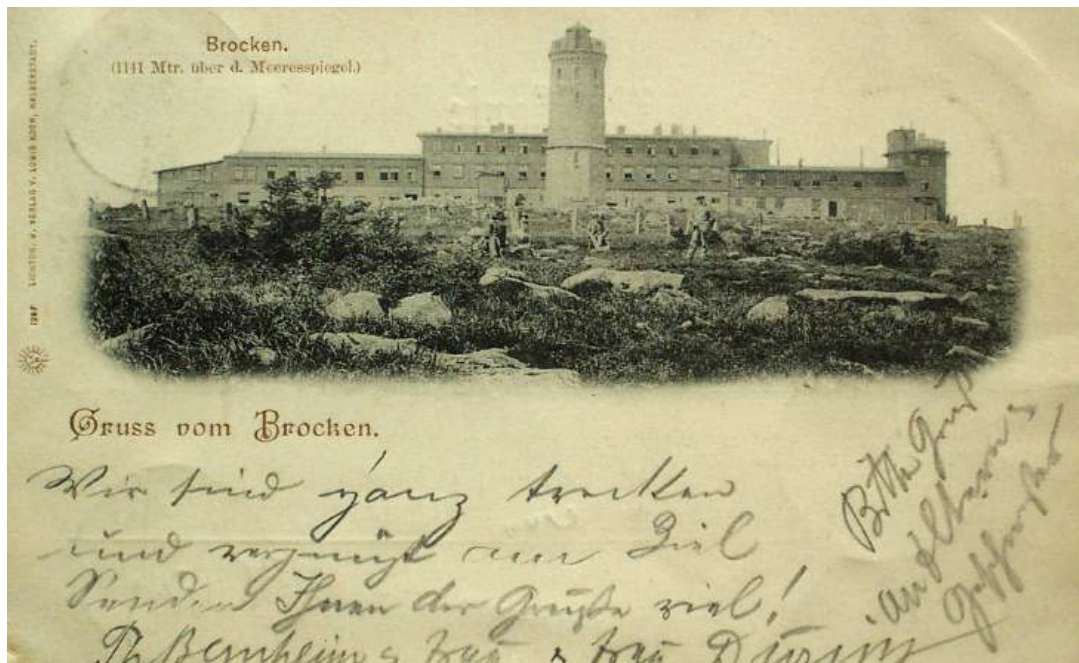 Brocken.
(1141 Mtr. über d. Meeresspiegel.)
LICHTDR. u. VERLAG V. LOUIS KOCH, HALBERSTADT.
Gruss vom Brocken.
Wir sind ganz trocken
und vergnügt am Ziel
Senden Ihnen der Grüße viel!
Th. Bernheim & Frau & Frau
Bitte Gruß
an Eltern &
Geschwister